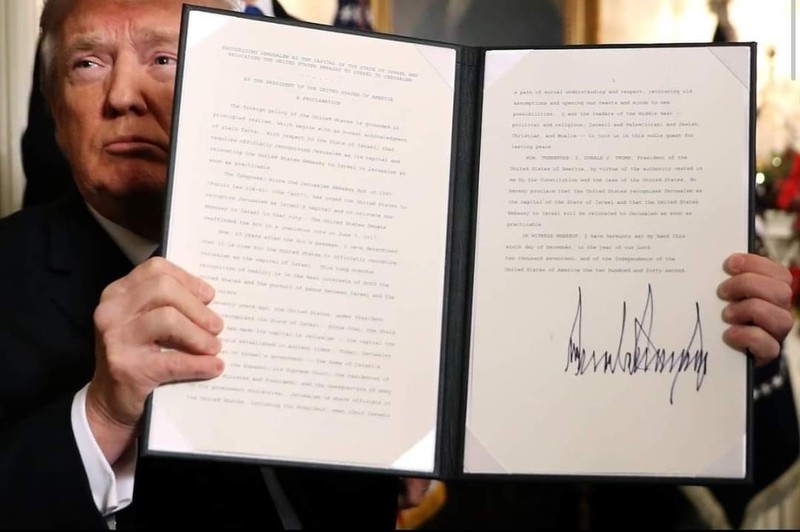 RECOGNIZING JERUSALEM AS THE CAPITAL OF THE STATE OF ISRAEL AND
RELOCATING THE UNITED STATES EMBASSY TO ISRAEL TO JERUSALEM
BY THE PRESIDENT OF THE UNITED STATES OF AMERICA
A PROCLAMATION
The foreign policy of the United States is grounded in
principled realism, which begins with an honest acknowledgment
of plain facts. With respect to the State of Israel, that
requires officially recognizing Jerusalem as its capital and
relocating the United States Embassy to Israel to Jerusalem as
soon as practicable.
The Congress, since the Jerusalem Embassy Act of 1995
(Public Law 104-45) (the "Act"), has urged the United States to
recognize Jerusalem as Israel's capital and to relocate our
Embassy to Israel to that city. The United States Senate
reaffirmed the Act in a unanimous vote on June 5, 2017.
Now, 22 years after the Act's passage, I have determined
that it is time for the United States to officially recognize
Jerusalem as the capital of Israel. This long overdue
recognition of reality is in the best interests of both the
United States and the pursuit of peace between Israel and the
years ago, the United States, under President
recognized the State of Israel. Since then, the State
has made its capital in Jerusalem -- the capital the
people established in ancient times. Today, Jerusalem
of Israel's government -- the home of Israel's
the Knesset, its Supreme Court, the residences of
Minister and President, and the headquarters of many
government ministries. Jerusalem is where officials of
the United States, including the President, meet their Israeli
a path of mutual understanding and respect, rethinking old
assumptions and opening our hearts and minds to new
possibilities. I ask the leaders of the Middle East --
political and religious, Israeli and Palestinian, and Jewish,
Christian, and Muslim -- to join us in this noble quest for
lasting peace.
NOW, THEREFORE, I, DONALD J. TRUMP, President of the
United States of America, by virtue of the authority vested in
me by the Constitution and the laws of the United States, do
hereby proclaim that the United States recognizes Jerusalem as
the capital of the State of Israel and that the United States
Embassy to Israel will be relocated to Jerusalem as soon as
practicable.
IN WITNESS WHEREOF, I have hereunto set my hand this
sixth day of December, in the year of our Lord
two thousand seventeen, and of the Independence of the
United States of America the two hundred and forty-second.